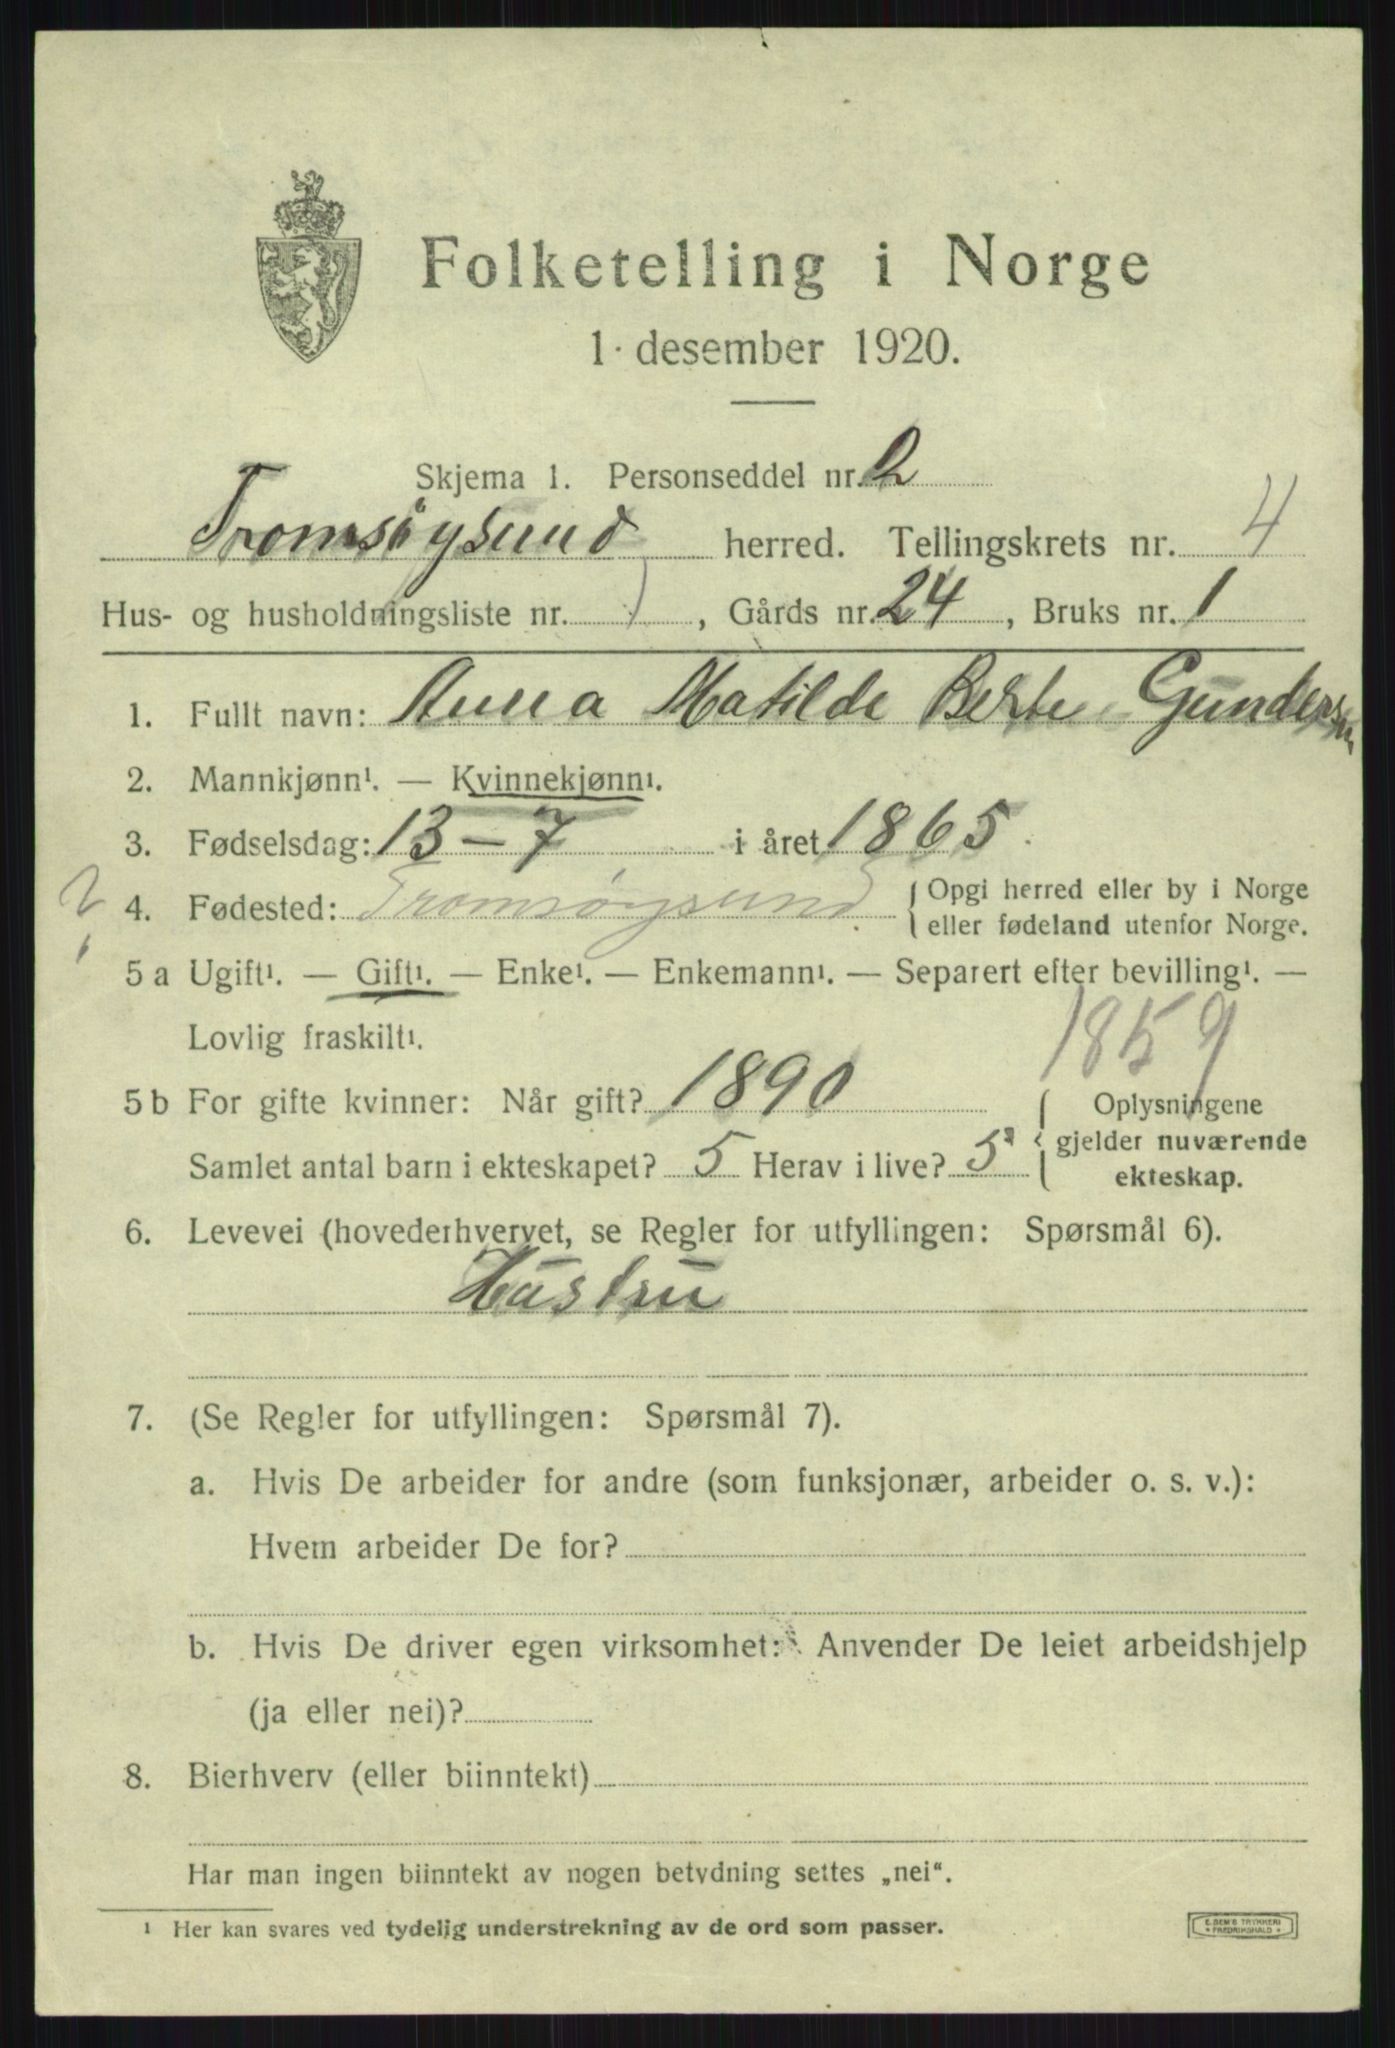 Folketelling i Norge
1. desember 1920.
Skjema 1. Personseddel nr. 2
Tromsøysund herred. Tellingskrets nr. 4
Hus- og husholdningsliste nr. 1, Gårds nr. 24, Bruks nr. 1
1. Fullt navn: Anna Matilde Berte Gundersen
2. Mannkjønn¹. — Kvinnekjønn¹.
3. Fødselsdag: 13 – 7 i året 1865
? 4. Fødested: Tromsøysund. { Opgi herred eller by i Norge
eller fødeland utenfor Norge.
5 a Ugift¹. — Gift¹. — Enke¹. — Enkemann¹. — Separert efter bevilling¹. —
Lovlig fraskilt¹.
1859
5 b For gifte kvinner: Når gift? 1890 { Oplysningene
Samlet antal barn i ekteskapet? 5 Herav i live? 5 gjelder nuværende
ekteskap.
6. Levevei (hovederhvervet, se Regler for utfyllingen: Spørsmål 6).
Hustru
7. (Se Regler for utfyllingen: Spørsmål 7).
a. Hvis De arbeider for andre (som funksjonær, arbeider o. s. v.):
Hvem arbeider De for?
b. Hvis De driver egen virksomhet: Anvender De leiet arbeidshjelp
(ja eller nei)?
8. Bierhverv (eller biinntekt)
Har man ingen biinntekt av nogen betydning settes „nei“.
¹ Her kan svares ved tydelig understrekning av de ord som passer.
E. SEM'S TRYKKERI
* FREDRIKSHALD *